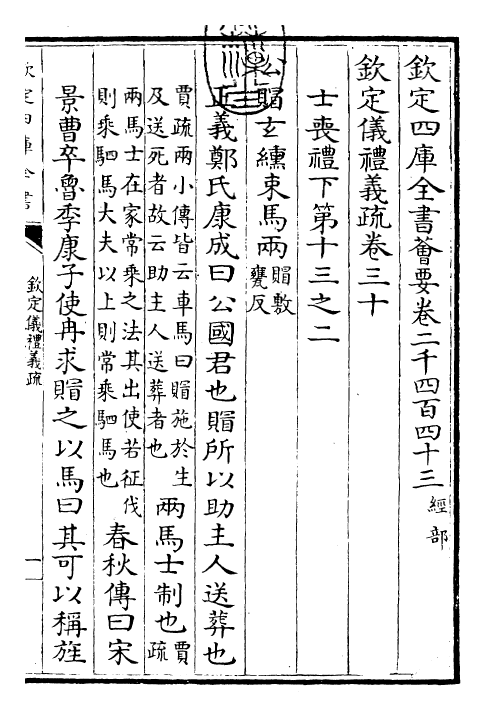 欽定四庫全書薈要卷二千四百四十三經部
欽定儀禮義疏卷三十
士喪禮下第十三之二
公賵玄纁束馬兩賵敷
甕反
正義鄭氏康成曰公國君也賵所以助主人送葬也
賈疏兩小傳皆云車馬曰賵施於生
及送死者故云助主人送葬者也
兩馬士制也
賈疏
兩馬士在家常乘之法其出使若征伐
則乘駟馬大夫以上則常乘駟馬也
春秋傳曰宋
景曹卒魯季康子使冉求賵之以馬曰其可以稱旌
欽定四庫全書
欽定儀禮義疏
一